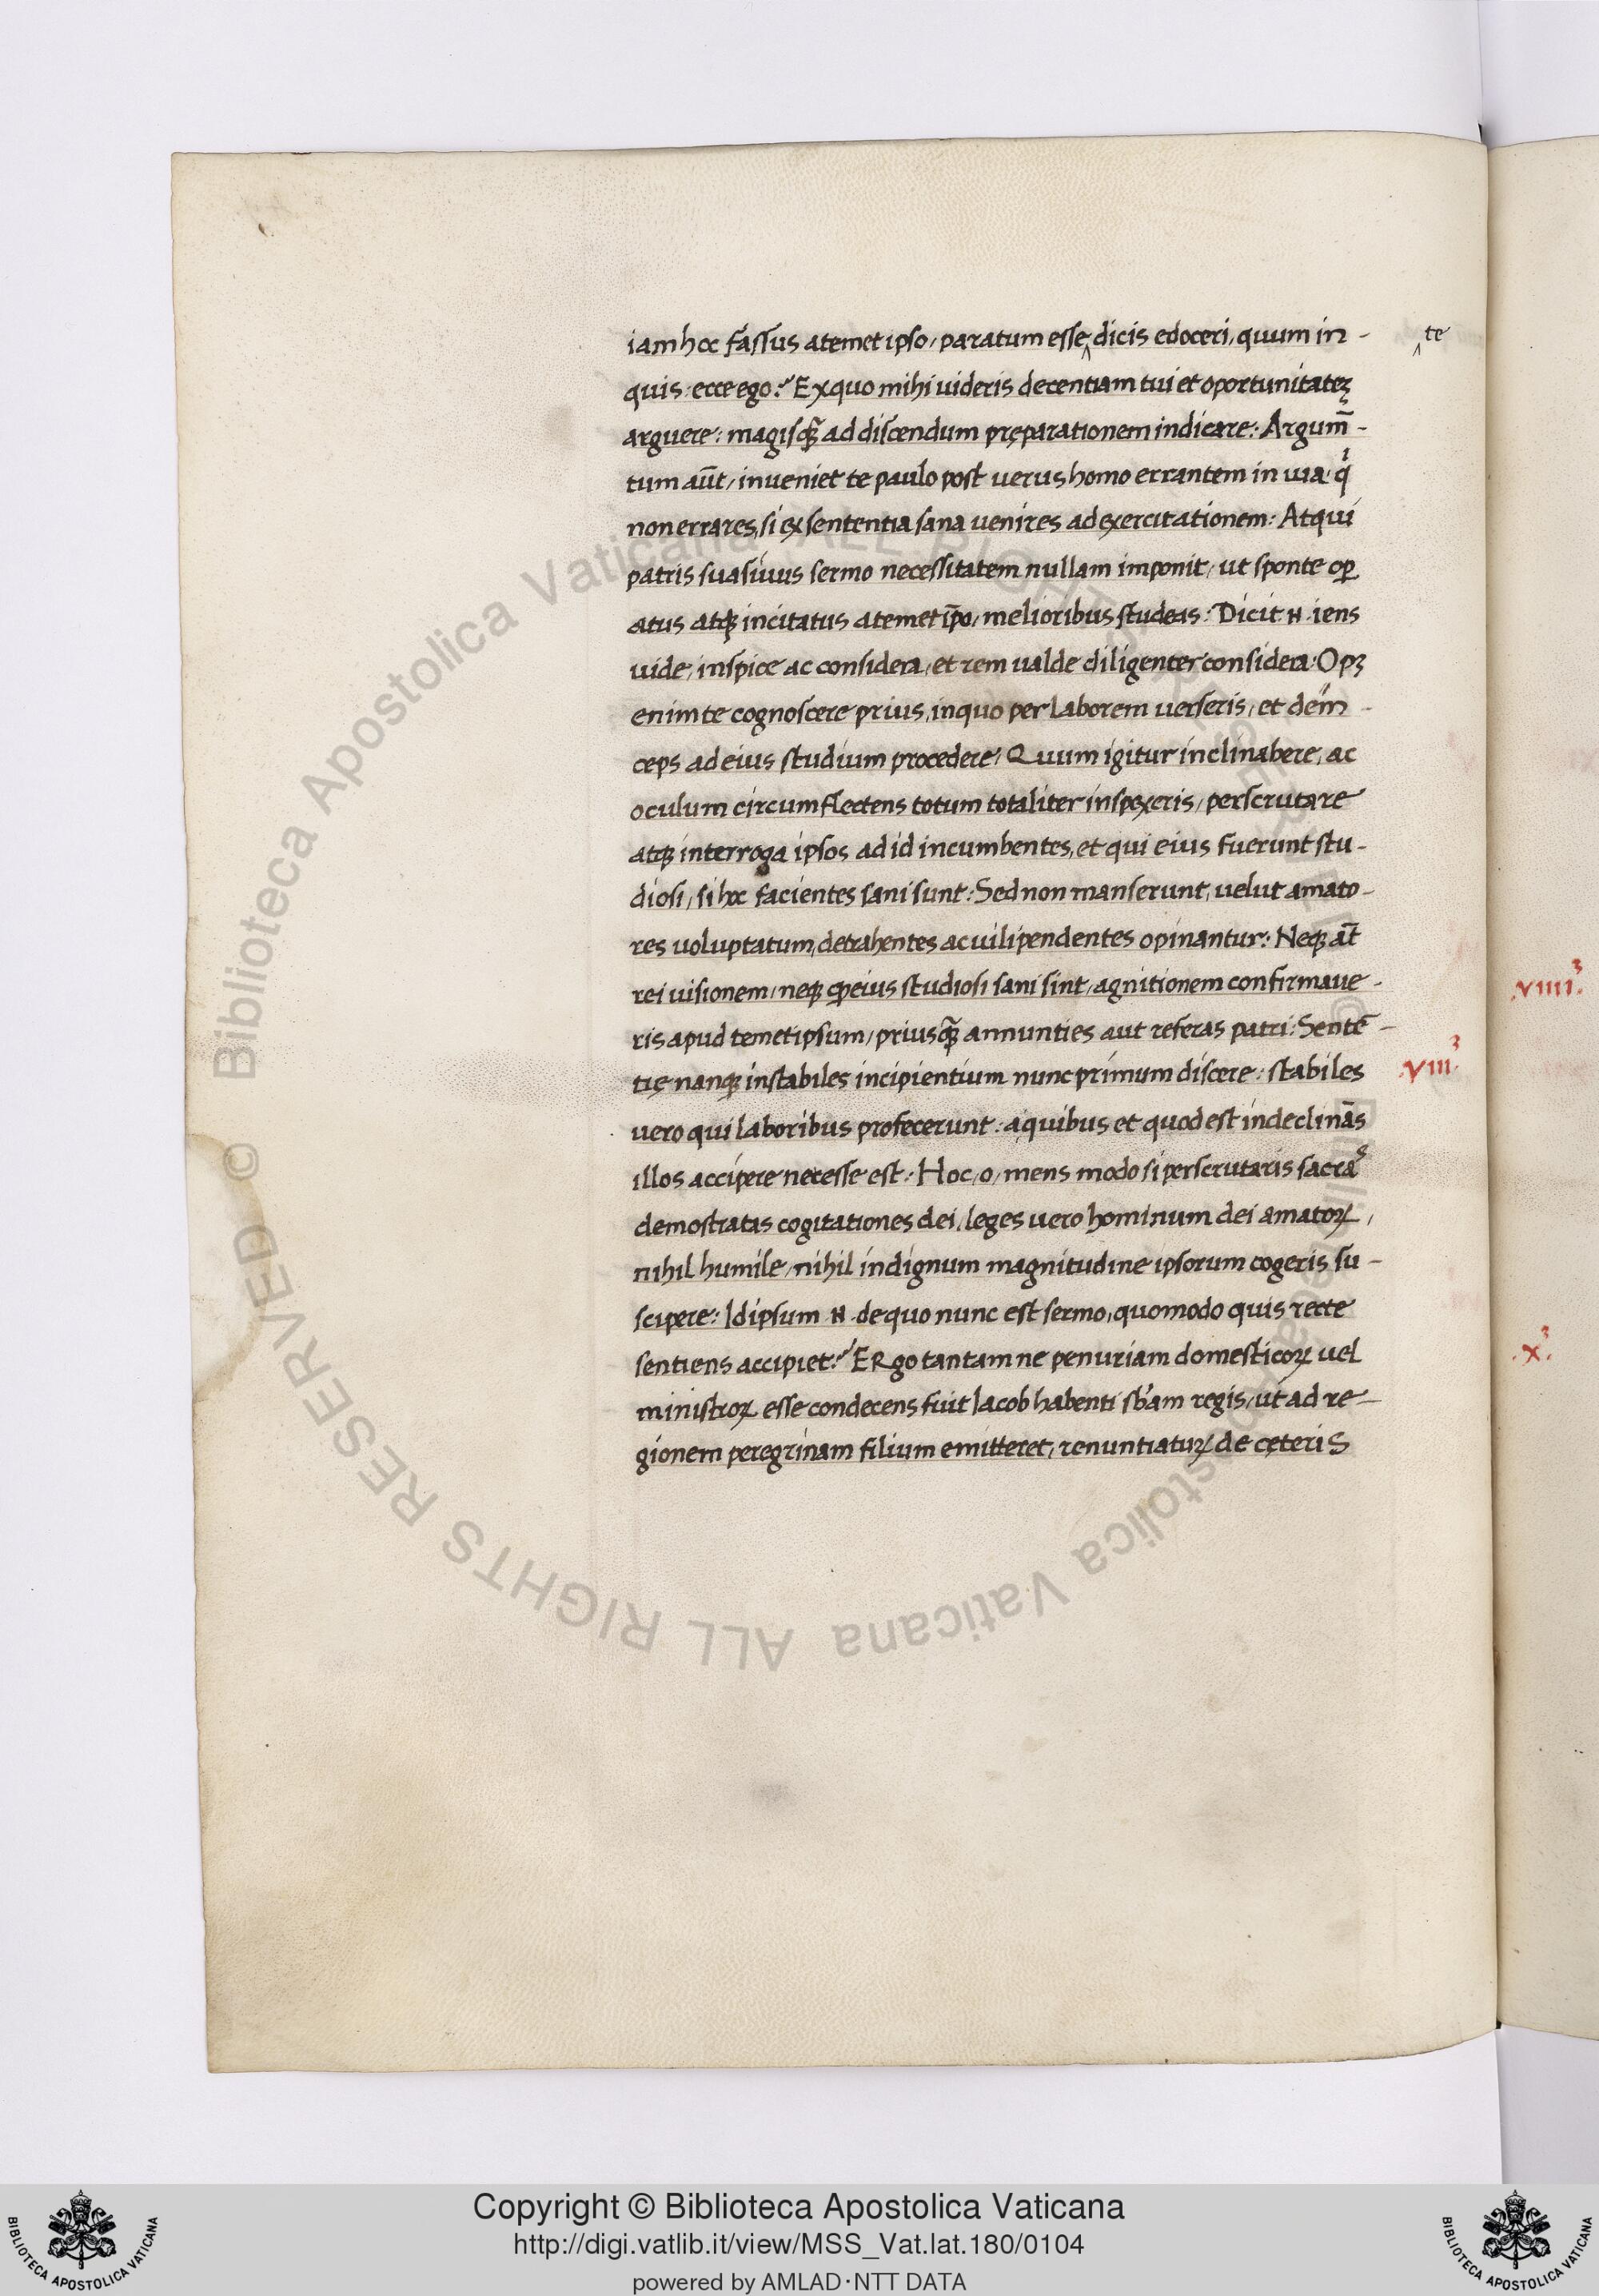 iam hoc fassus atemet ipso, paratum esse‸dicis edoceri, quum in- ‸te
quis ecce ego? Exquo mihi uideris decentiam tui et oportunitatẽ
arguere: magisq̃ ad discendum pręparationem indicare: Argum̃-
tum aũt, inueniet te paulo post uerus homo errantem in uia. q̇
non errares, si ex sententia sana uenires ad exercitationem: Atqui
patris suasiuus sermo necessitatem nullam imponit, ut sponte oꝑ
atus atqꝫ incitatus atemet ip̄o, melioribus studeas: Dicit .N. iens
uide, inspice ac considera, et rem ualde diligenter considera: Opꝫ
enim te cognoscere prius, inquo per laborem uerseris, et dein-
ceps ad eius studium procedere, Quum igitur inclinabere, ac
oculum circumflectens totum totaliter inspexeris, perscrutare
atqꝫ interroga ipsos ad id incumbentes, et qui eius fuerunt stu-
diosi, si hoc facientes sani sunt: Sed non manserunt, uelut amato-
res uoluptatum, detrahentes ac uilipendentes opinantur: Neqꝫ aũt
rei uisionem, neqꝫ ꝙ eius studiosi sani sint, agnitionem confirmaue-
ris apud temetipsum, priusq̃ annunties aut referas patri: Sentẽ-
tię nanqꝫ instabiles incipientium nunc primum discere: stabiles .VIII.
uero qui laboribus profecerunt: aquibus et quod est indeclinãs
illos accipere necesse est: Hoc, o, mens modo si perscrutaris sacras
demostratas cogitationes dei, leges uero hominum dei amatoꝝ,
nihil humile, nihil indignum magnitudine ipsorum cogeris su-
scipere: Id ipsum .N. dequo nunc est sermo, quomodo quis recte
sentiens accipiet? ERgo tantam ne penuriam domesticoꝝ uel
ministroꝝ esse condecens fuit Iacob habenti sb̃am regis, ut ad re-
gionem peregrinam filium emitteret, renuntiatuꝝ de cęteriS
.VIIII.
.X.
Copyright © Biblioteca Apostolica Vaticana
http://digi.vatlib.it/view/MSS_Vat.lat.180/0104
powered by AMLAD·NTT DATA